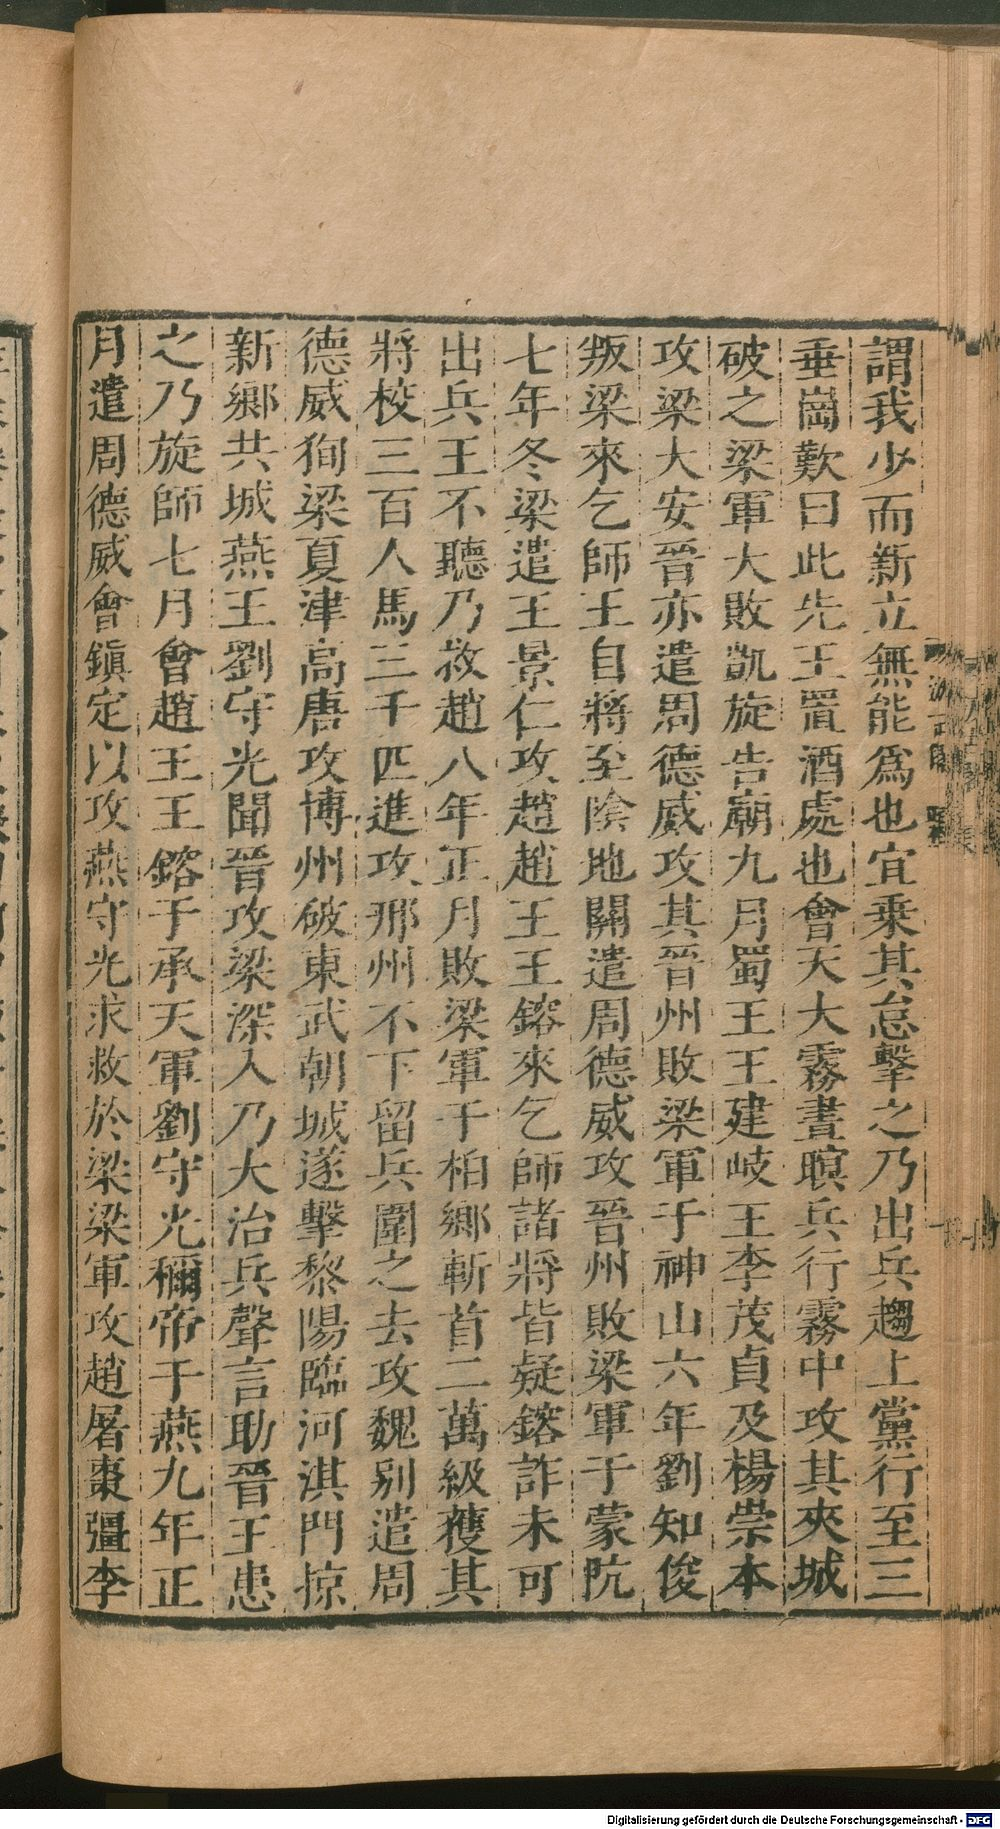 謂我少而新立無能爲也宜乗其怠擊之乃出兵趨上黨行至三
垂崗歎曰此先王置酒處也會天大霧晝暝兵行霧中攻其夾城
破之梁軍大敗凱旋告廟九月蜀王王建岐王李茂貞及楊崇本
攻梁大安晉亦遣周德威攻其晉州敗梁軍于神山六年劉知俊
叛梁來乞師王自將至陰地關遣周德威攻晉州敗梁軍于蒙阬
七年冬梁遣王景仁攻趙趙王王鎔來乞師諸將皆疑鎔詐未可
出兵王不聽乃救趙八年正月敗梁軍于柏鄉斬首二萬級穫其
將校三百人馬三千匹進攻邢州不下留兵圍之去攻魏别遣周
德威狥梁夏津高唐攻博州破東武朝城遂擊黎陽臨河淇門掠
新鄉共城燕王劉守光聞晉攻梁深入乃大治兵聲言助晉王患
之乃旋師七月會趙王王鎔于承天軍劉守光稱帝于燕九年正
月遣周德威會鎮定以攻燕守光求救於梁梁軍攻趙屠棗彊李
Digitalisierung gefördert durch die Deutsche Forschungsgemeinschaft - DFG